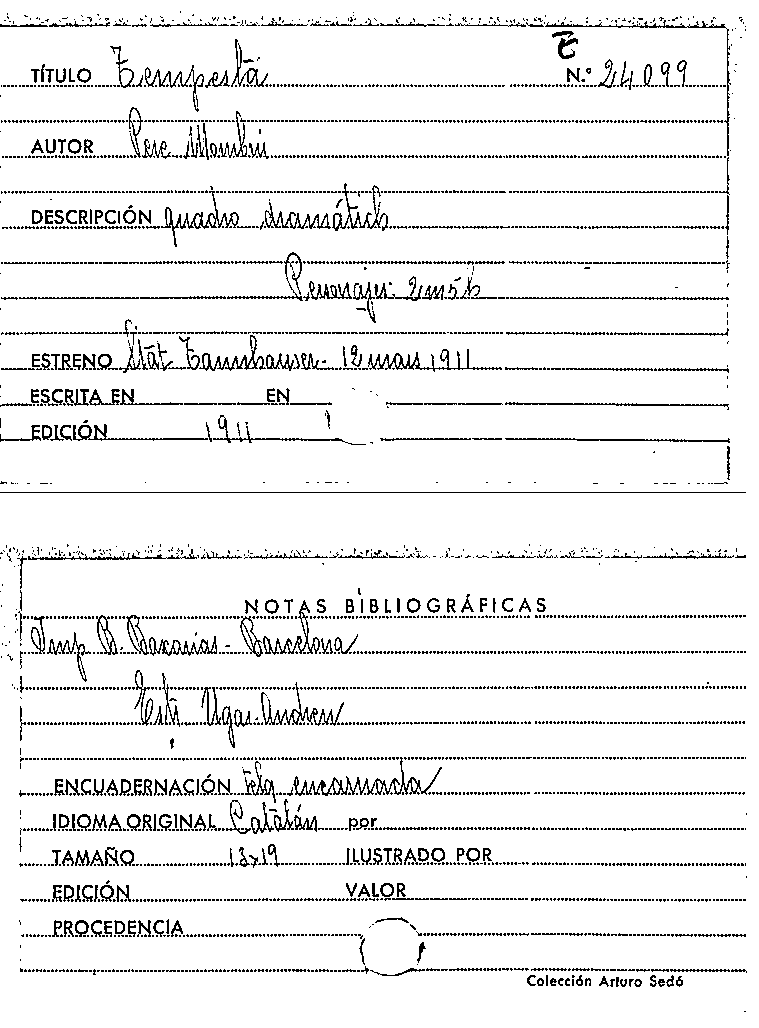 T
TÍTULO Tempestà N.º 24099
AUTOR Pere Mombrú
DESCRIPCIÓN quadro dramátich
Personajes: 2m5h
ESTRENO Stat Tannhauser - 12 mars 1911
ESCRITA EN EN
EDICIÓN 1911
NOTAS BIBLIOGRÁFICAS
Imp B. Baxarias - Barcelona
Ugas-Andreu
ENCUADERNACIÓN tela encarnada
IDIOMA ORIGINAL Catalán por
TAMAÑO 13x19 ILUSTRADO POR
EDICIÓN VALOR
PROCEDENCIA
Colección Arturo Sedó